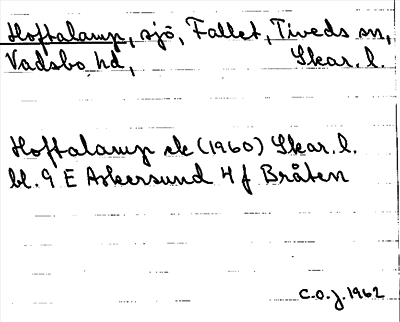 Hoftalamp, sjö, Fallet, Tiveds sn,
Vadsbo hd, Skar. l.
Hoftalamp ek (1960) Skar. l.
bl. 9 E Askersund 4 f Bråten
C.O.J. 1962